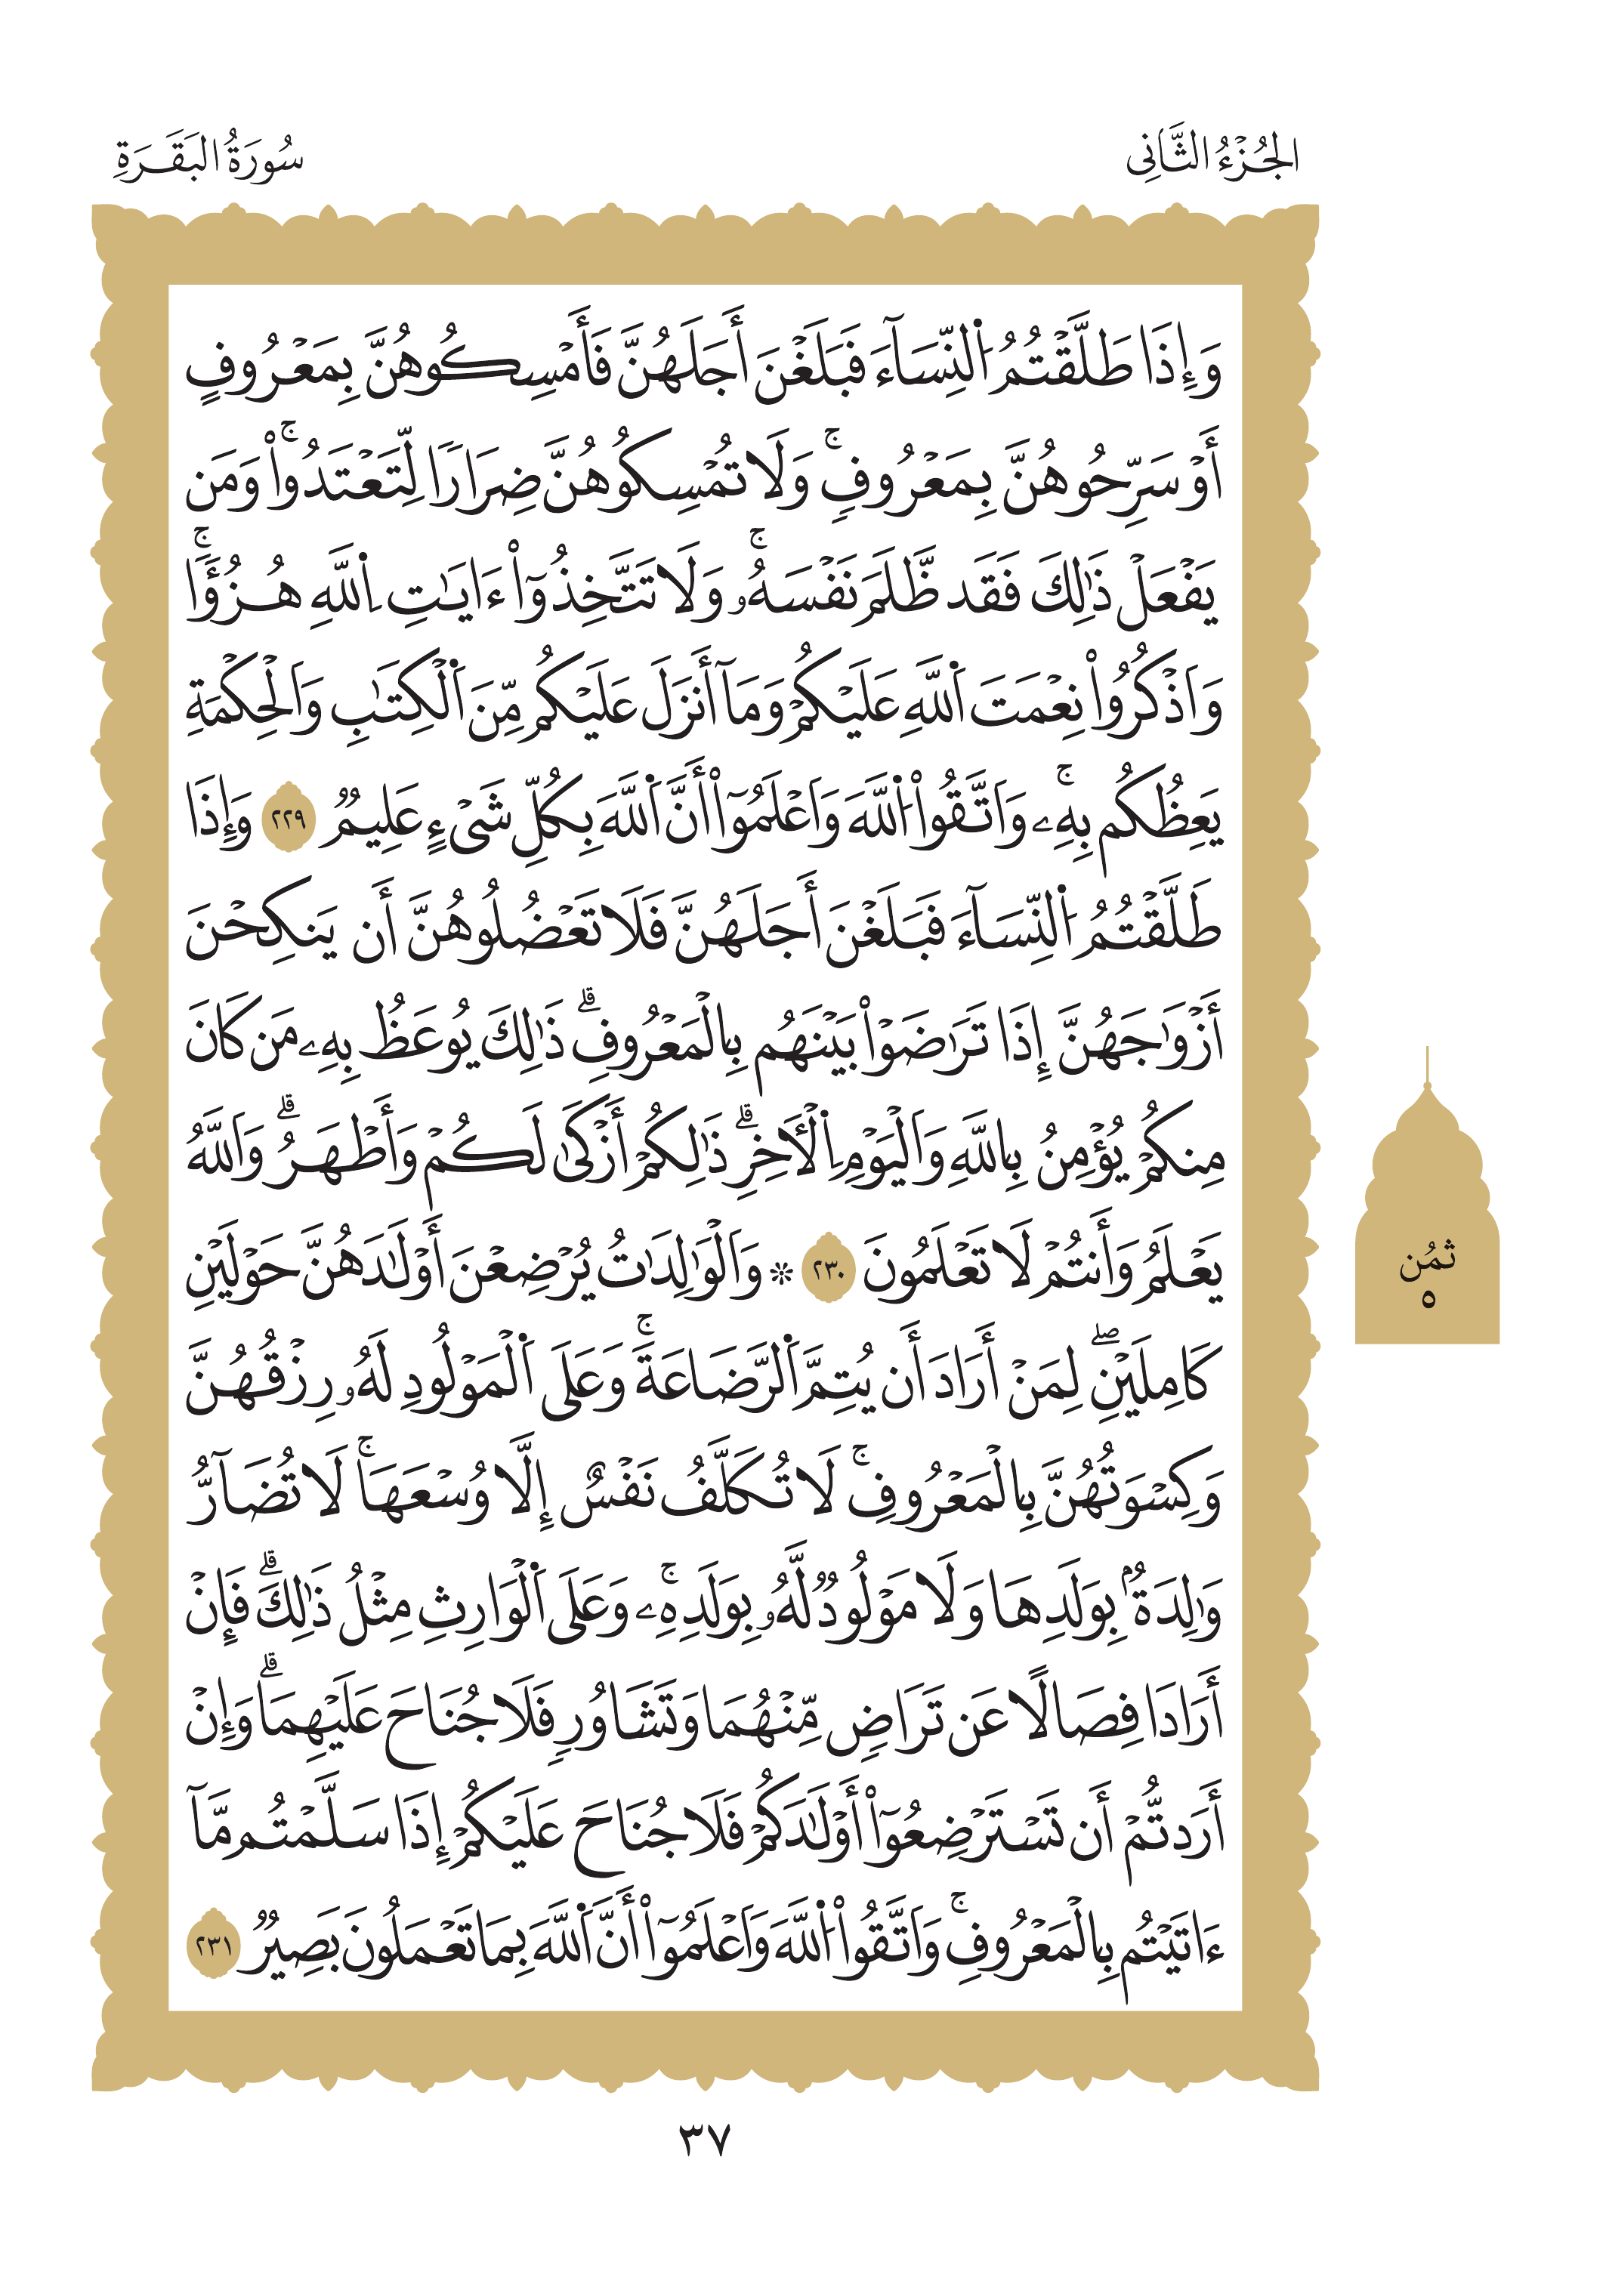 الجُزْءُ الثَّانِى
سُورَةُ البَقَرَةِ
وَإِذَا طَلَّقْتُمُ اُ۬لنِّسَآءَ فَبَلَغْنَ أَجَلَهُنَّ فَأَمْسِكُوهُنَّ بِمَعْرُوفٍ
أَوْ سَرِّحُوهُنَّ بِمَعْرُوفٍۚ وَلَا تُمْسِكُوهُنَّ ضِرَارًا لِّتَعْتَدُواْۚ وَمَن
يَفْعَلْ ذَٰلِكَ فَقَد ظَّلَمَ نَفْسَهُۥۚ وَلَا تَتَّخِذُوٓاْ ءَايَٰتِ اِ۬للَّهِ هُزُؤًاۚ
وَاَذْكُرُواْ نِعْمَتَ اَ۬للَّهِ عَلَيْكُمْ وَمَآ أَنزَلَ عَلَيْكُم مِّنَ اَ۬لْكِتَٰبِ وَالْحِكْمَةِ
يَعِظُكُم بِهِۦۚ وَاَتَّقُواْ اُ۬للَّهَ وَاَعْلَمُوٓاْ أَنَّ اَ۬للَّهَ بِكُلِّ شَىْءٍ عَلِيمٌ ٢٢٩ وَإِذَا
طَلَّقْتُمُ اُ۬لنِّسَآءَ فَبَلَغْنَ أَجَلَهُنَّ فَلَا تَعْضُلُوهُنَّ أَن يَنكِحْنَ
أَزْوَٰجَهُنَّ إِذَا تَرَٰضَوْاْ بَيْنَهُم بِالْمَعْرُوفِۗ ذَٰلِكَ يُوعَظُ بِهِۦ مَن كَانَ
مِنكُمْ يُؤْمِنُ بِاللَّهِ وَالْيَوْمِ اِ۬لْأَخِرِۗ ذَٰلِكُمْ أَزْكَىٰ لَكُمْ وَأَطْهَرُۗ وَاللَّهُ
يَعْلَمُ وَأَنتُمْ لَا تَعْلَمُونَ ٢٣٠ ۞ وَالْوَٰلِدَٰتُ يُرْضِعْنَ أَوْلَٰدَهُنَّ حَوْلَيْنِ
كَامِلَيْنِۖ لِمَنْ أَرَادَ أَن يُتِمَّ اَ۬لرَّضَاعَةَۚ وَعَلَى اَ۬لْمَوْلُودِ لَهُۥ رِزْقُهُنَّ
وَكِسْوَتُهُنَّ بِالْمَعْرُوفِۚ لَا تُكَلَّفُ نَفْسٌ إِلَّا وُسْعَهَاۚ لَا تُضَآرُّ
وَٰلِدَةُۢ بِوَلَدِهَا وَلَا مَوْلُودٌ لَّهُۥ بِوَلَدِهِۦۚ وَعَلَى اَ۬لْوَارِثِ مِثْلُ ذَٰلِكَۗ فَإِنْ
أَرَادَا فِصَالًا عَن تَرَاضٍ مِّنْهُمَا وَتَشَاوُرٍ فَلَا جُنَاحَ عَلَيْهِمَاۗ وَإِنْ
أَرَدتُّمْ أَن تَسْتَرْضِعُوٓاْ أَوْلَٰدَكُمْ فَلَا جُنَاحَ عَلَيْكُمْ إِذَا سَلَّمْتُم مَّآ
ءَاتَيْتُم بِالْمَعْرُوفِۚ وَاَتَّقُواْ اُ۬للَّهَ وَاَعْلَمُوٓاْ أَنَّ اَ۬للَّهَ بِمَا تَعْمَلُونَ بَصِيرٌ ٢٣١
ثُمُن
٥
٣٧